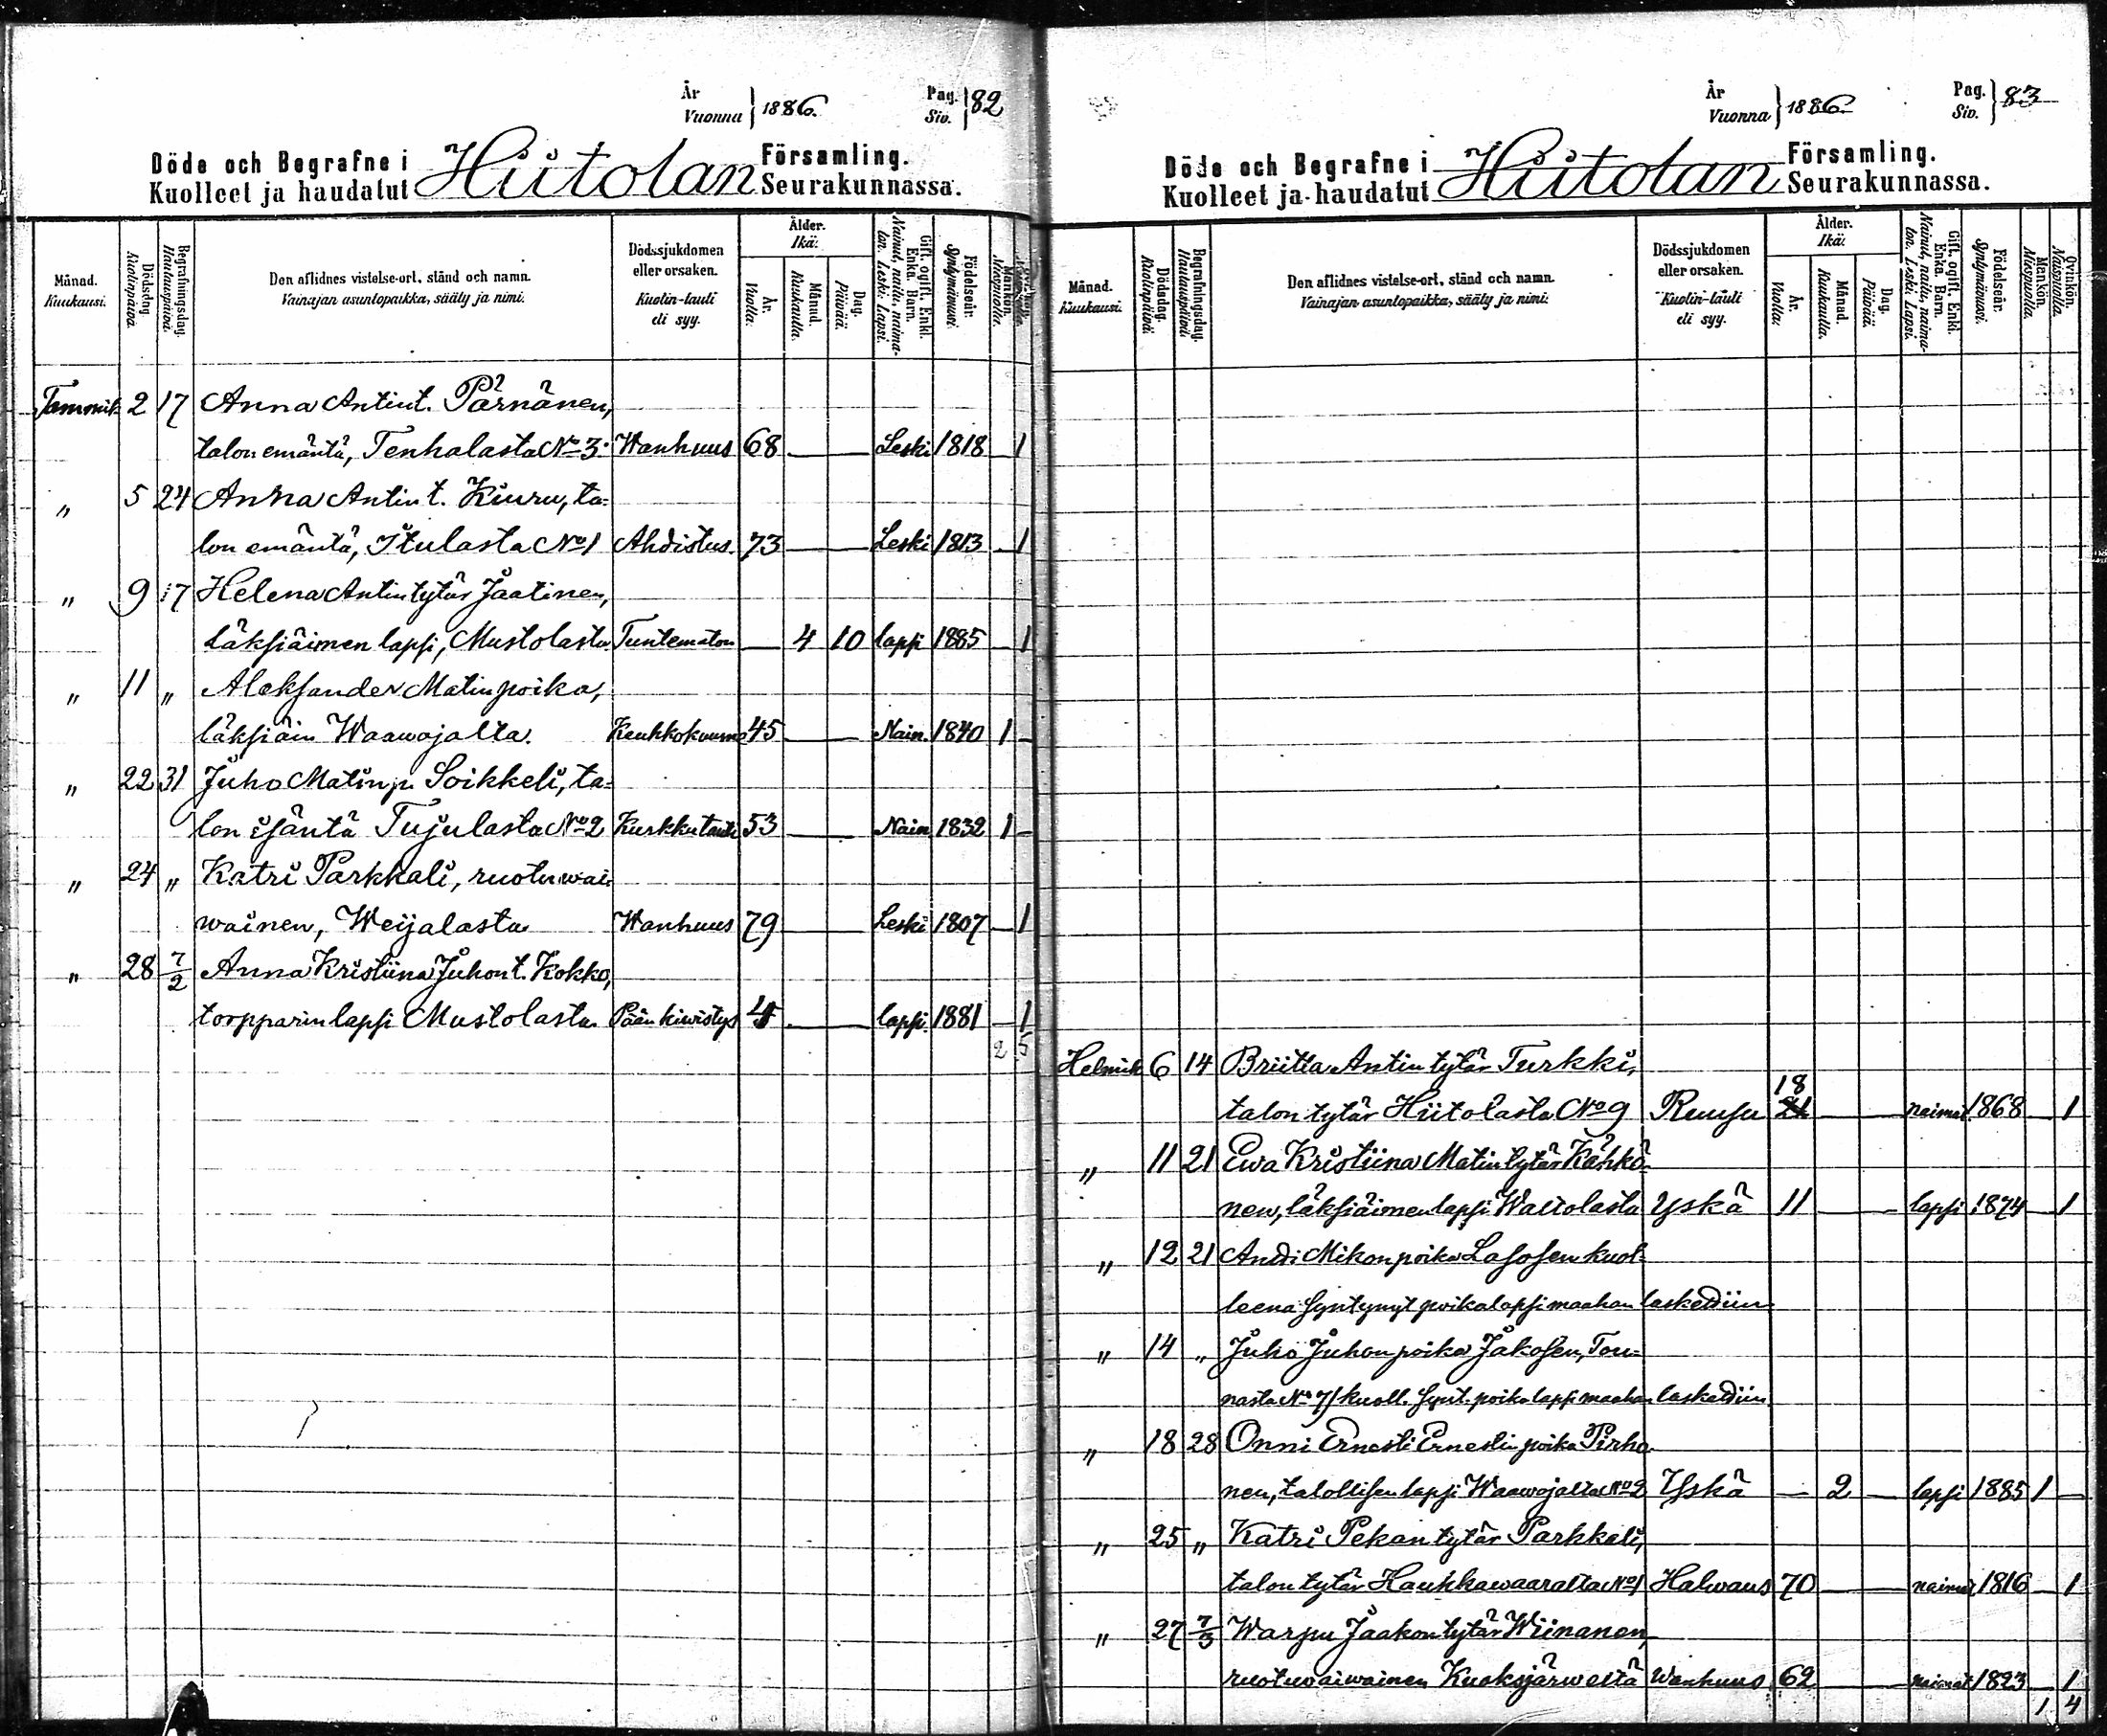 År
Vuonna } 1886.
Pag.
Siv. } 82
Döde och Begrafne i Hiitolan Församling.
Kuolleet ja haudatut Seurakunnassa.
Månad. Kuukausi.
Dödsdag. Kuolinpäivä.
Begrafningsdag. Hautauspäivä.
Den aflidnes vistelse-ort, stånd och namn.
Vainajan asuntopaikka, sääty ja nimi.
Dödssjukdomen eller orsaken.
Kuolin-tauti eli syy.
Ålder. Ikä:
År. Vuotta.
Månad. Kuukautta.
Dag. Päivää.
Gift, ogift, Enkl. Enka. Barn.
Nainut, naitu, naimaton. Leski. Lapsi.
Födelseår. Syntymävuosi.
Mankön. Miespuolia.
Tammik. 2 17 Anna Antint. Pärnänen,
talon emäntä, Tenhalasta No 3. Wanhuus 68 Leski 1818 1
" 5 24 Anna Antint. Kiuru, ta-
lon emäntä, Itulasta No 1 Ahdistus 73 Leski 1813 1
" 9 17 Helena Antintytär Jaatinen,
läksiäimen lapsi, Mustolasta Tuntematon 4 10 lapsi 1885 1
" 11 " Aleksander Matinpoika,
läksiäin Waawojalta. Keuhkokuume 45 Nain. 1840 1
" 22 31 Juho Matinp. Soikkeli, ta-
lon isäntä Tujulasta No 2 Kurkkutauti 53 Nain. 1832 1
" 24 " Katri Parkkali, ruotuwai-
wainen, Weijalasta Wanhuus 79 Leski 1807 1
" 28 7/2 Anna Kristiina Juhont. Kokko,
torpparin lapsi Mustolasta. Pään kiwistys 4 lapsi 1881 1
2 5
År
Vuonna } 1886.
Pag.
Siv. } 83
Döde och Begrafne i Hiitolan Församling.
Kuolleet ja haudatut Seurakunnassa.
Månad. Kuukausi.
Dödsdag. Kuolinpäivä.
Begrafningsdag. Hautauspäivä.
Den aflidnes vistelse-ort, stånd och namn.
Vainajan asuntopaikka, sääty ja nimi.
Dödssjukdomen eller orsaken.
Kuolin-tauti eli syy.
Ålder. Ikä:
År. Vuotta.
Månad. Kuukautta.
Dag. Päivää.
Gift, ogift, Enkl. Enka. Barn.
Nainut, naitu, naimaton. Leski. Lapsi.
Födelseår. Syntymävuosi.
Mankön. Miespuolia.
Qvinkön. Naispuolia.
Helmik 6 14 Briitta Antintytär Turkki,
talon tytär Hiitolasta No 9 Ruusu 18 naimat. 1868 1
" 11 21 Ewa Kristiina Matintytär Kähkö-
nen, läksiäimen lapsi Waltolasta Yskä 11 lapsi 1874 1
" 12 21 Andi Mikonpoika Lasosen kuol-
leena syntynyt poikalapsi maahan laskettiin
" 14 " Juho Juhonpoika Jakosen, Tou-
nasta No 7/ kuoll. synt. poikalapsi maahan laskettiin
" 18 28 Onni Ernesti Ernestinpoika Pirho-
nen, talollisen lapsi Waawojalta No 2 Yskä 2 lapsi 1885 1
" 25 " Katri Pekantytär Parkkali,
talon tytär Haukkawaaralta No 1 Halwaus 70 naimat 1816 1
" 27 7/3 Warpu Jaakontytär Wiinanen,
ruotuwaiwainen Kuoksjärweltä Wanhuus 62 naimat 1823 1
1 4